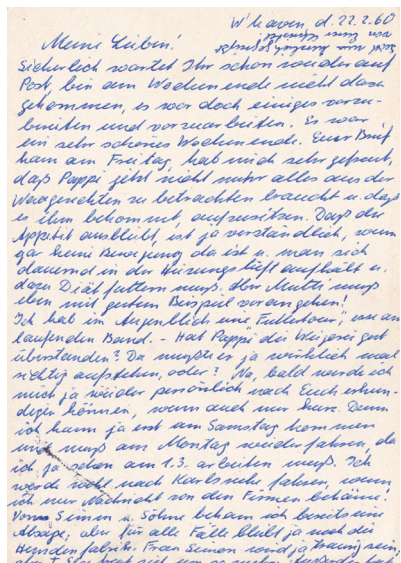 W'haven, d. 22.2.60
Meine Lieben!
Sicherlich wartet Ihr schon wieder auf
Post, bin am Wochenende nicht dazu
gekommen, es war doch einiges vorzu-
bereiten und vorzuarbeiten. Es war
ein sehr schönes Wochenende. Euer Brief
kam am Freitag, hab mich sehr gefreut,
daß Pappi jetzt nicht mehr alles aus der
Waagerechten zu betrachten braucht u. daß
es ihm bekommt, aufzusitzen. Daß der
Appetit ausbleibt, ist ja verständlich, wenn
gar keine Bewegung da ist u. man sich
dauernd in der Heizungsluft aufhält u.
dazu Diät futtern muß. Aber Mutti muß
eben mit gutem Beispiel vorangehen!
Ich hab im Augenblick eine "Futteritis", wie am
laufenden Band. - Hat Pappi die Wiegerei gut
überstanden? Da mußte er ja wirklich mal
richtig aufstehen, oder? Na, bald werde ich
mich ja wieder persönlich nach Euch erkun-
digen können, wenn auch nur kurz. Denn
ich kann ja erst am Samstag kommen
und muß am Montag wieder fahren, da
ich ja schon am 1.3. arbeiten muß. Ich
werde nicht nach Karlsruhe fahren, wenn
ich nur Nachricht von den Firmen bekäme!
Von Simon u. Söhne bekam ich bereits eine
Absage, aber für alle Fälle bleibt ja noch die
Hemdenfabrik. Frau Simon wird ja traurig sein,